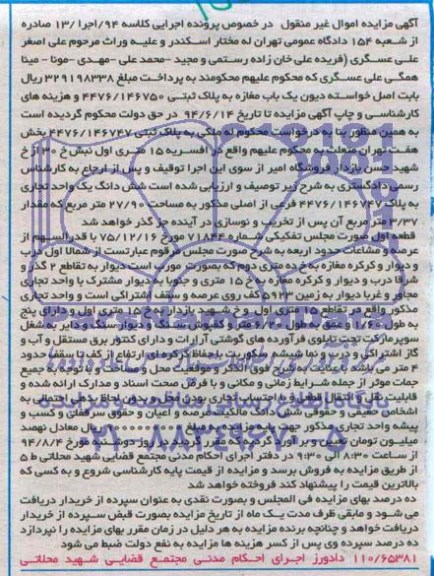 آگهی مزایده اموال غیر منقول در خصوص پرونده اجرایی کلاسه ۹۴/اجرا /۱۳ صادره
از شعبه ۱۵۴ دادگاه عمومی تهران له مختار اسکندر و علیه وراث مرحوم علی اصغر
علی عسگری (فریده علی خان زاده رستمی و مجید -محمد علی -مهدی -مونا - مینا
همگی علی عسگری که محکوم علیهم محکومند به پرداخت مبلغ ۳۲۹۱۹۸۳۳۸ ریال
بابت اصل خواسته دیون یک باب مغازه به پلاک ثبتی ۴۴۷۶/۱۴۶۷۵۰ و هزینه های
کارشناسی و چاپ آگهی مزایده تا تاریخ ۹۴/۶/۱۴ در حق دولت محکوم گردیده است
به همین منظور بنا به درخواست محکوم له ملکی به پلاک ثبتی ۴۴۷۶/۱۴۶۷۴۷ بخش
هفت تهران متعلق به محکوم علیهم واقع در افسریه ۱۵ متری اول نبش خ ۳۰ از خ
شهید حسن بازدار فروشگاه امیر از سوی این اجرا توقیف و پس از ارجاع به کارشناس
رسمی دادگستری به شرح زیر توصیف و ارزیابی شده است شش دانگ یک واحد تجاری
به پلاک ۴۴۷۶/۱۴۶۷۴۷ فرعی از اصلی مذکور به مساحت ۲۷/۹۰ متر مربع که مقدار
۳/۳۷ متر مربع آن پس از تخریب و نوسازی در آینده جزء گذر خواهد شد
قطعه اول صورت مجلس تفکیکی شماره ۷۱۸۴۴ مورخ ۷۵/۱۲/۱۶ با قدرالسهم از
عرصه و مشاعات حدود اربعه به شرح صورت مجلس مرقوم عبارتست از شمالا اول درب
و دیوار و کرکره مغازه به خ ده متری دوم که بصورت مورب است دیوار به تقاطع ۲ گذر و
شرقا درب و دیوار و کرکره مغازه به خ ۱۵ متری و جنوبا به دیوار مشترک با واحد تجاری
مجاور و غربا دیوار به زمین ۵۹۲۳ کف روی عرصه و سقف اشتراکی است و واحد تجاری
مذکور واقع در تقاطع ۱۵ متری اول و خ شهید بازدار به خ ۱۵ متری اول و دارای پنج
به طول ۴/۶۰ و عمق به طول متر و کفپوش سنگ و دیوار سنگ و دایر به شغل
سوپرمارکت تحت تابلوی فرآورده های گوشتی آرارات و دارای کنتور برق مستقل و آب و
گاز اشتراکی و درب و نما شیشه سکوریت با حفاظ کرکره ای ارتفاع از کف تا سقف حدود
۴ متر می باشد با عنایت به شرح فوق الذکر و موقعیت محل و مساحت و با توجه به جمیع
جهات موثر از جمله شرایط زمانی و مکانی و با فرض صحت اسناد و مدارک ارائه شده و
قابلیت نقل و انتقال قطعی و با احتساب تجاری بودن محل و بدون لحاظ دیون احتمالی به
اشخاص حقیقی و حقوقی شش دانگ مالکیت عرصه و اعیان و حقوق سرقفلی و کسب و
پیشه واحد تجاری مذکور جهت پایه مزایده به مبلغ ریال معادل نهصد
میلیون تومان تعیین و برآورد گردید که مقرر گردید در روز دوشنبه مورخ ۹۴/۸/۴
از ساعت ۸:۳۰ الی ۹:۳۰ در دفتر اجرای احکام مدنی مجتمع قضایی شهید محلاتی ط ۵
از طریق مزایده به فروش برسد و مزایده از قیمت پایه کارشناسی شروع و به کسی که
بالاترین قیمت را پیشنهاد کند فروخته خواهد شد
ده درصد بهای مزایده فی المجلس و بصورت نقدی به عنوان سپرده از خریدار دریافت
می شود و مابقی ظرف مدت یک ماه از تاریخ مزایده بصورت قبض سپرده از خریدار
دریافت خواهد و چنانچه برنده مزایده به هر دلیل در زمان مقرر بهای مزایده را نپردازد
ده درصد سپرده وی پس از کسر هزینه ها مزایده به نفع دولت ضبط می شود
۱۱۰/۶۵۳۸۱ دادورز اجرای احکام مدنی مجتمع قضایی شهید محلاتی
۰۲۱-۸۸۳۴۹۶۷۰-۵